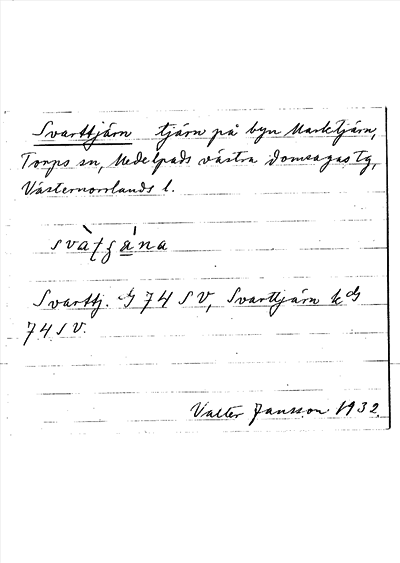 Svarttjärn tjärn på byn Marktjärn,
Torps sn, Medelpads västra domsagas tg,
Västernorrlands l.
Svarttj. 74 SV, Svarttjärn
74 SV.
Valter Jansson 1932.